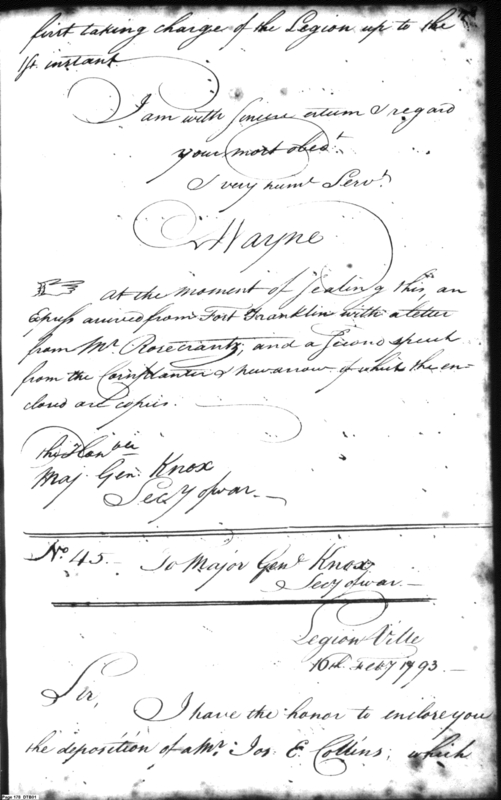 first taking charge of the Legion up to the
1st. instant
I am with Sincere esteem & regard
your most obedt.
& very huml. Servt.
Wayne
At the moment of Sealing this, an
Express arrived from Fort Franklin with a letter
from Mr. Rosecrantz, and a Second speech
from the Cornplanter & New arrow of which the en-
closed are copies.
The Honble
Maj. Gen. Knox
Secy of war
No. 45. To Major Genl. Knox
Secy of war
Legion Ville
16th. Feby 1793.
Sir,
I have the honor to enclose you
the deposition of a Mr. Jos. E. Collins, which
Page 176 DTB01